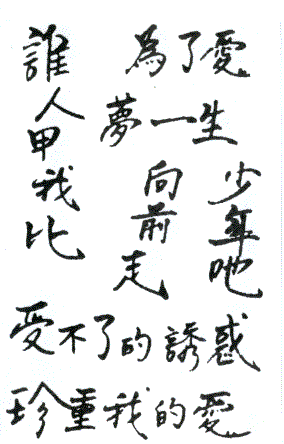 為了愛
夢一生
誰人甲我比
向前走
少年吔
受不了的誘惑
珍重我的愛